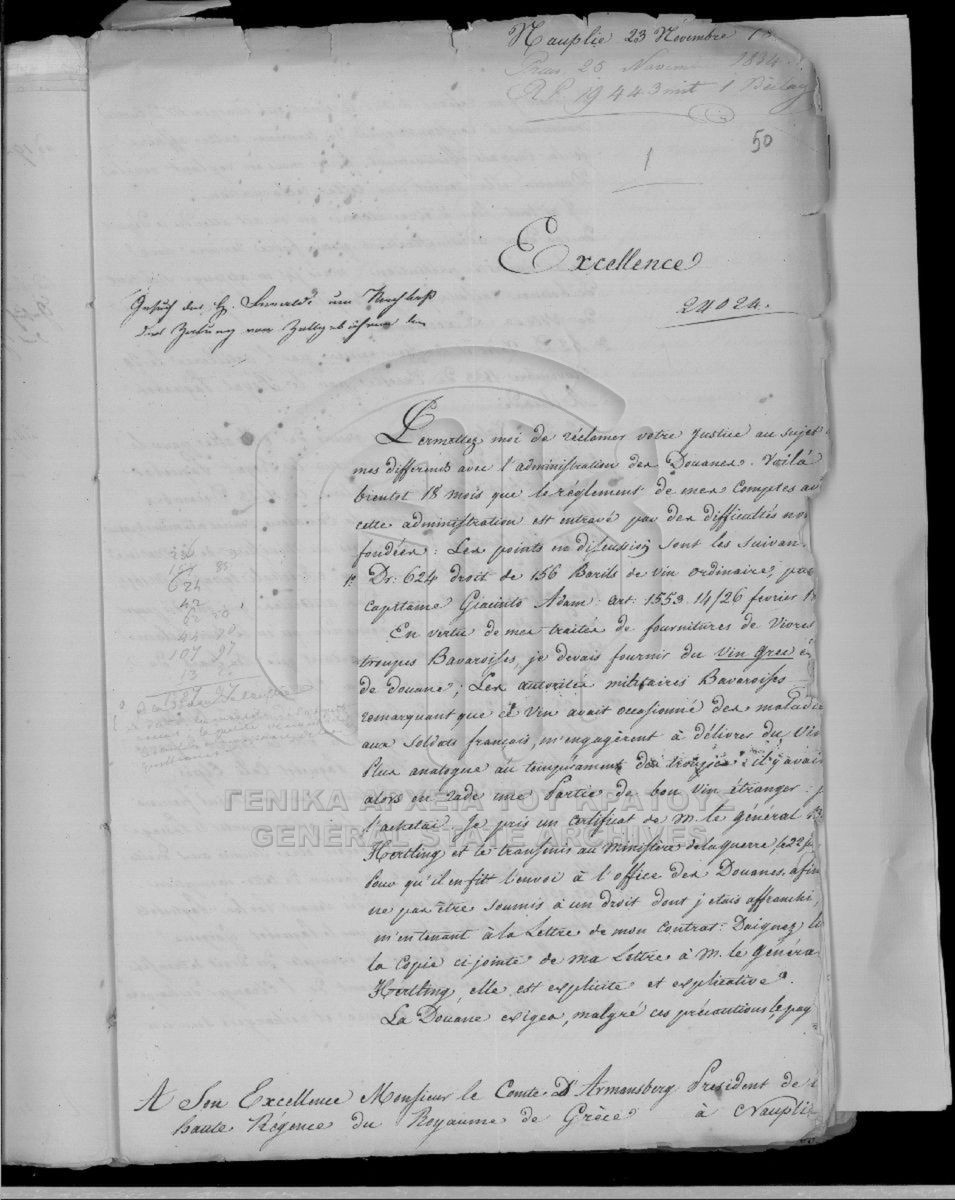 Nauplie 23 Novembre
Präs 25 Novem 1834
R.P. 19443 mit 1 Beilag
50
1
Excellence
24024.
Gesuch des H. um Nachlaß
der von Zollgebühren
Permettez moi de réclamer votre Justice au sujet
mes differends avec l'administration des Douanes. Voilà
bientot 18 mois que le réglement de mes Comptes av
cette administration est entravé par des difficultés no
fondées: Les points en discussion sont les suivan
1º Dr: 624 droit de 156 Barils de vin ordinaire, par
Capitaine Giacinto Adam: art: 1553 14/26 fevrier 18
En vertu de mes traités de fournitures de Vivres
troupes Bavaroises, je devais fournir du Vin grec
de douane; Les autorités militaires Bavaroises
remarquant que ce Vin avait occasionné des maladie
aux Soldats français, m'engagèrent à délivrer du Vin
plus analogue au temperament des troupes: il y avai
alors en rade une Partie de bon Vin étranger: j
l'achetai. Je pris un certificat de M. le général
Hertling et le transmis au Ministère de la guerre, le 22
Pour qu'il en fitt l'envoi à l'office des Douanes, afin
ne pas être soumis à un droit dont j'etais affranchi,
m'en tenant à la Lettre de mon contrat: Daignez li
la Copie ci jointe de ma Lettre à M. le Généra
Hertling, elle est explicite et explicative.
La Douane exigea, malgré ces précautions, le pay
A Son Excellence Monsieur le Comte d'Armansberg, President de l
haute Régence du Royaume de Grèce à Nauplie
624
42
62 50
107 97
ΓΕΝΙΚΑ ΑΡΧΕΙΑ ΤΟΥ ΚΡΑΤΟΥΣ
GENERAL STATE ARCHIVES